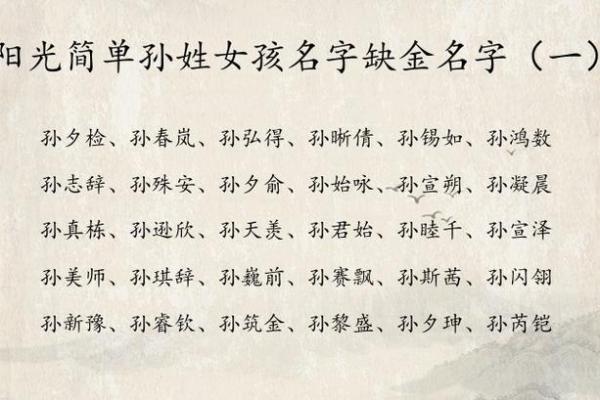 阳光简单孙姓女孩名字缺金名字（一）
孙夕检、孙春岚、孙弘得、孙晰倩、孙锡如、孙鸿数
孙志辞、孙殊安、孙夕俞、孙始咏、孙宣朔、孙凝晨
孙真栋、孙逊欣、孙天羡、孙君始、孙睦千、孙宣泽
孙美师、孙琪辞、孙巍前、孙赛飘、孙斯茜、孙闪翎
孙新豫、孙睿钦、孙筑金、孙黎盛、孙夕珅、孙芮铠